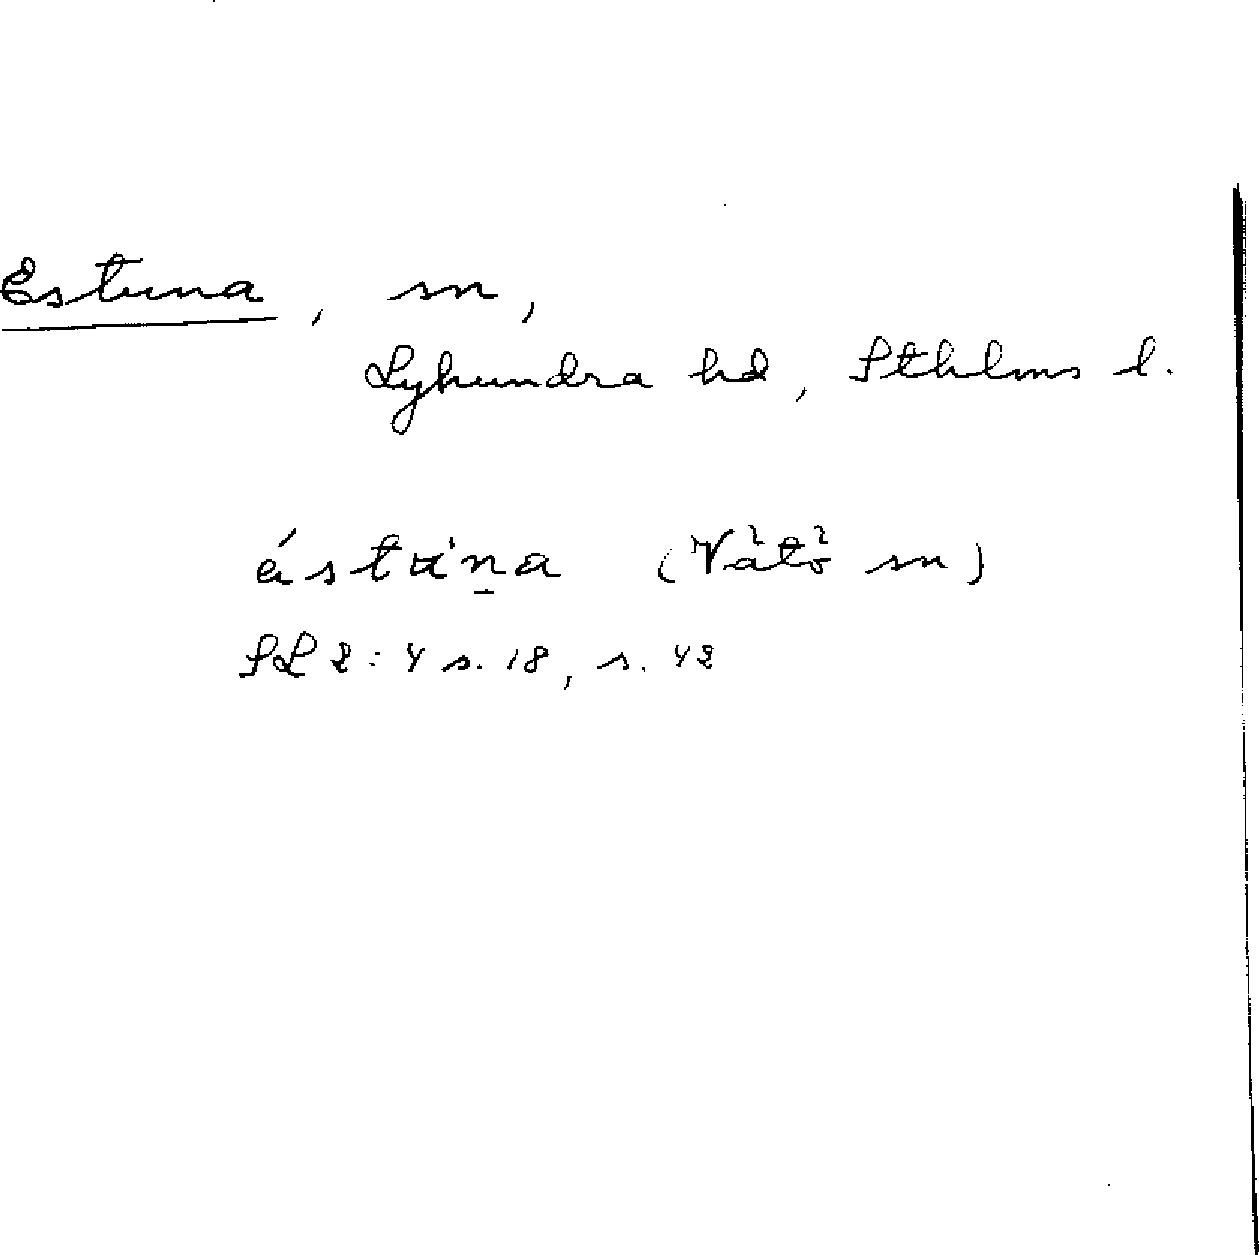 Estuna, sn,
Lyhundra hd, Sthlms l.
éstu̇na (Vätö sn)
SL 2:4 s. 18, s. 42